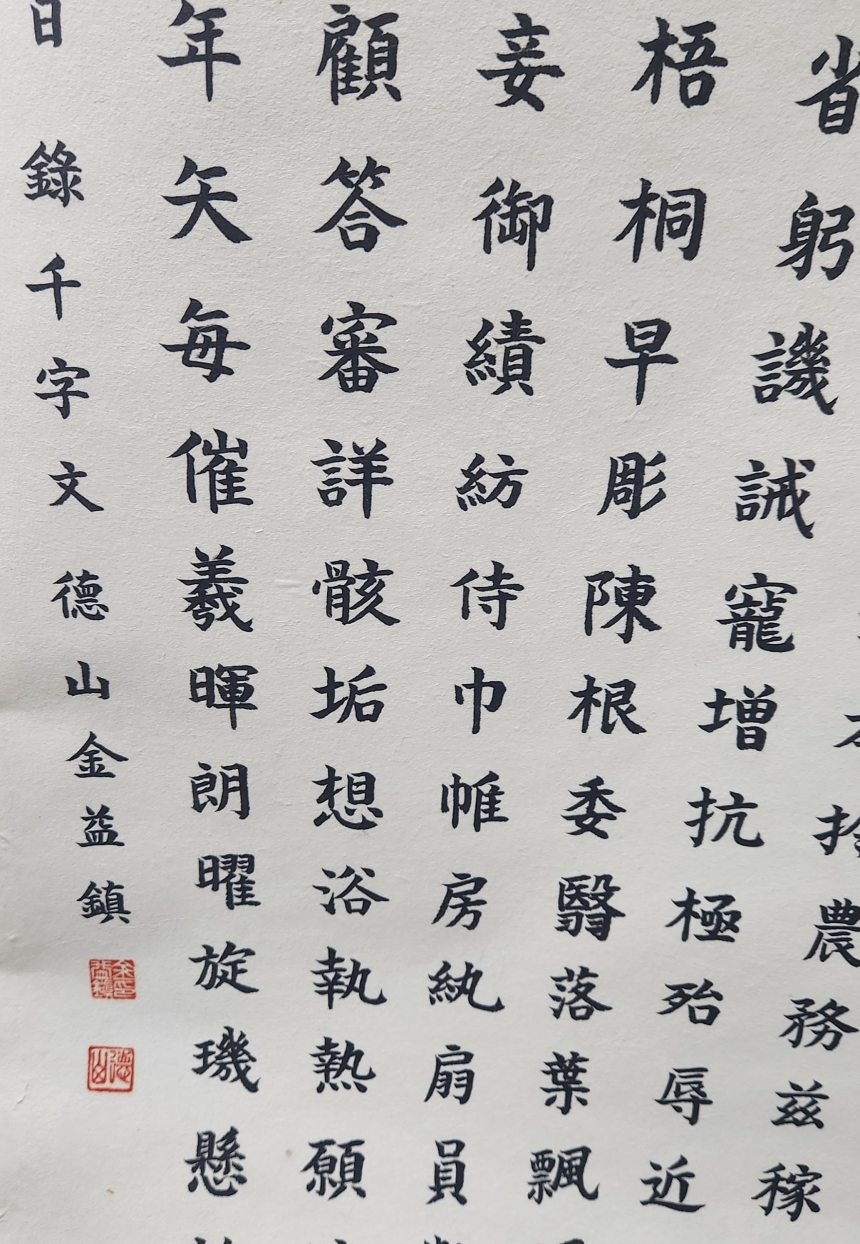 農務茲稼
省躬譏誡寵增抗極殆辱近
梧桐早彫陳根委翳落葉飄
妾御績紡侍巾帷房紈扇員
顧答審詳骸垢想浴執熱願
年矢每催羲暉朗曜旋璣懸
日錄千字文德山金益鎮
金益鎮印
德山